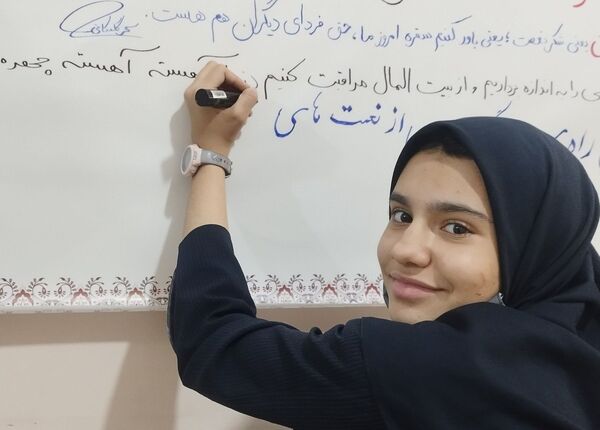 یعنی شکر نعمت؛ یعنی باور کنیم سفره امروز ما، حق فردای دیگران هم هست.
را به اندازه برداریم و از بیت المال مراقبت کنیم آهسته آهسته چهره
راه از نعمت های